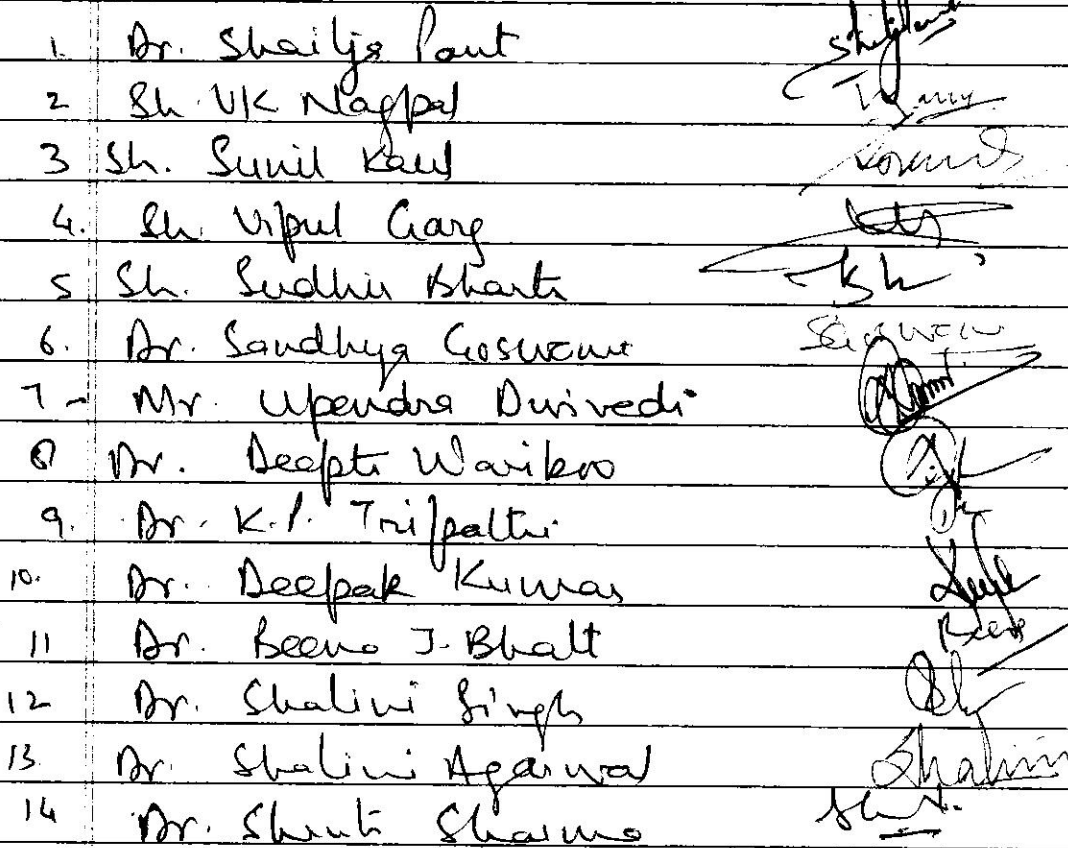 1. Dr. Shailja Pant
2 Sh. VK Nagpal
3 Sh. Sunil Kaul
4. Sh. Vipul Garg
5 Sh. Sudhir Bharti
6. Dr. Sandhya Goswami SGoswami
7 - Mr. Upendra Dwivedi
8 Dr. Deepti Warikoo
9. Dr. K.P. Tripathi
10. Dr. Deepak Kumar
11 Dr. Beena J. Bhatt Beena
12 Dr. Shalini Singh
13. Dr. Shalini Agarwal Shalini
14 Dr. Shruti Sharma